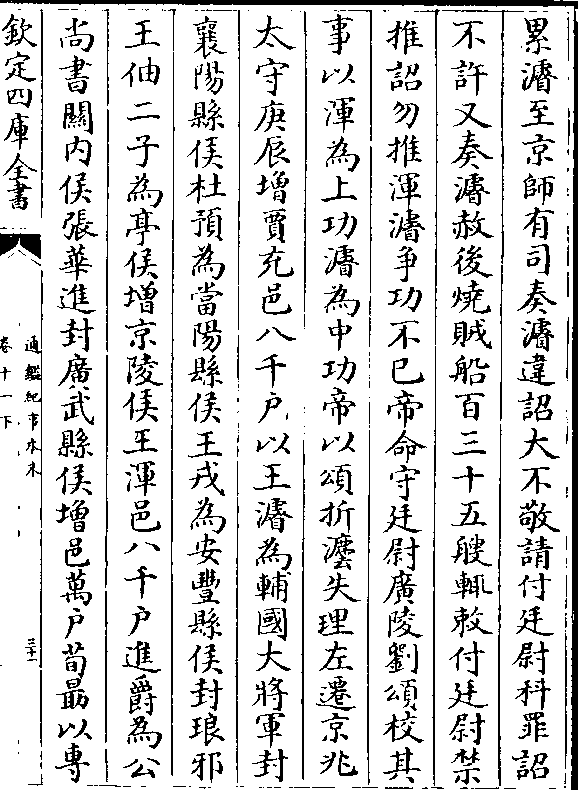 累濬至京師有司奏濬違詔大不敬請付廷尉科罪詔
不許又奏濬赦後燒賊船百三十五艘輒敕付廷尉禁
推詔勿推渾濬争功不已帝命守廷尉廣陵劉頌校其
事以渾為上功濬為中功帝以頌折灋失理左遷京兆
太守庚辰增賈充邑八千户以王濬為輔國大將軍封
襄陽縣侯杜預為當陽縣侯王戎為安豐縣侯封琅邪
王伷二子為亭侯增京陵侯王渾邑八千户進爵為公
尚書關内侯張華進封廣武縣侯增邑萬户荀勗以專
欽定四庫全書
通鑑紀事本末
卷十一下
三十一